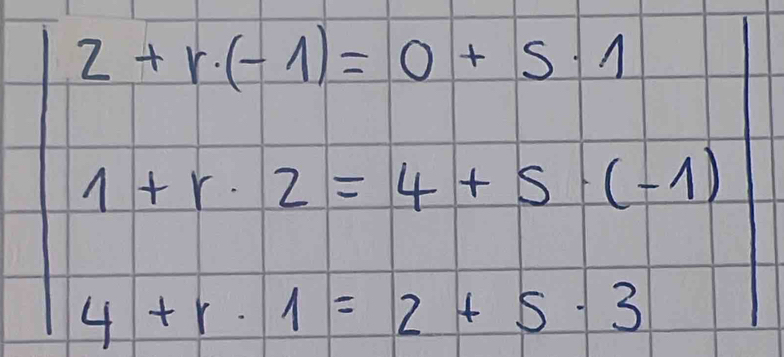 2 + r · (-1) = 0 + s · 1
1 + r · 2 = 4 + s · (-1)
4 + r · 1 = 2 + s · 3